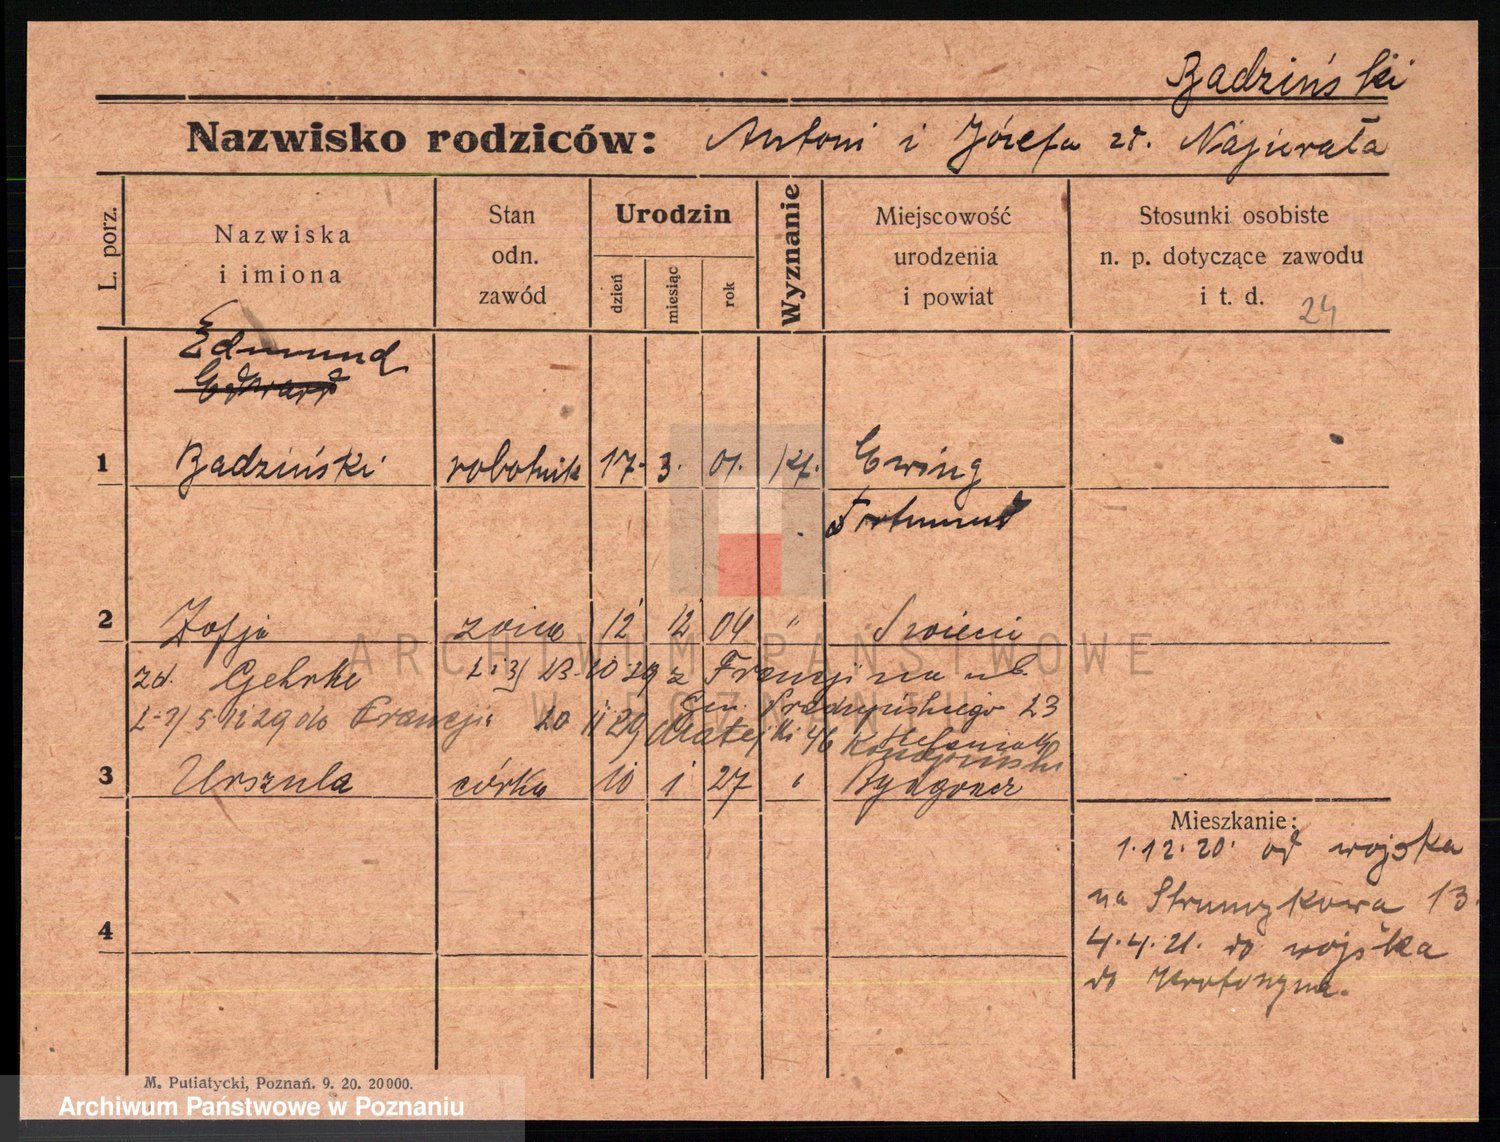 Badziński
Nazwisko rodziców: Antoni i Józefa zd. Najurała
L. porz.
Nazwiska
i imiona
Stan
odn.
zawód
Urodzin
dzień
miesiąc
rok
Wyznanie
Miejscowość
urodzenia
i powiat
Stosunki osobiste
n. p. dotyczące zawodu
i t. d.
24
Edmund
Edward
1 Badziński robotnik 17. 3. 01. kt. Ewing
Dortmund
2 Zofja żona 12 12 04 " Świecie
zd. Gehrke 23 10 29 z Francji na ul.
Gen. Prądzyńskiego 23
5 12 29 do Francji 20 11 29 Matejki 46
3 Urszula córka 10 1 27 " Bydgoszcz
Mieszkanie:
1.12.20. od wojska
na Strumykowa 13.
4
4.4.21. do wojska
do Krotoszyna.
M. Putiatycki, Poznań. 9. 20. 20000.
ARCHIWUM PAŃSTWOWE
W POZNANIU
Archiwum Państwowe w Poznaniu